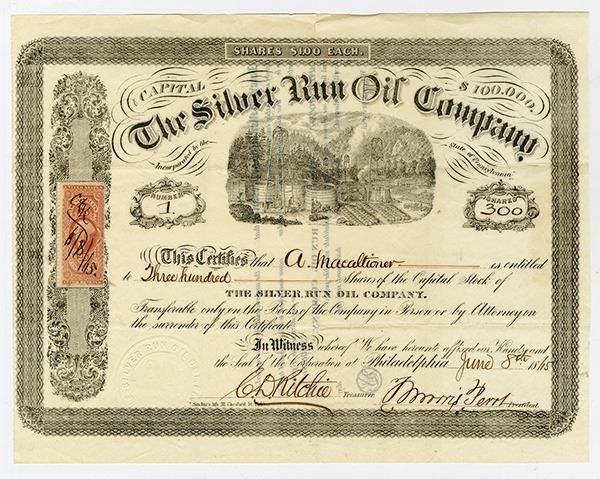 SHARES $1.00 EACH.
CAPITAL $100.000.
The Silver Run Oil Company
Incorporated by the State of Pennsylvania
NUMBER 1. SHARES 300
This Certifies that A. Macaltioner is entitled
to Three hundred Shares of the Capital Stock of
THE SILVER RUN OIL COMPANY.
Transferable only on the Books of the Company in Person or by Attorney on
the surrender of this Certificate
In Witness whereof We have hereunto affixed our Hands and
the Seal of the Corporation at Philadelphia June 8th 1865
C D Ritchie Treasurer T Morris Perot President.
SILVER RUN